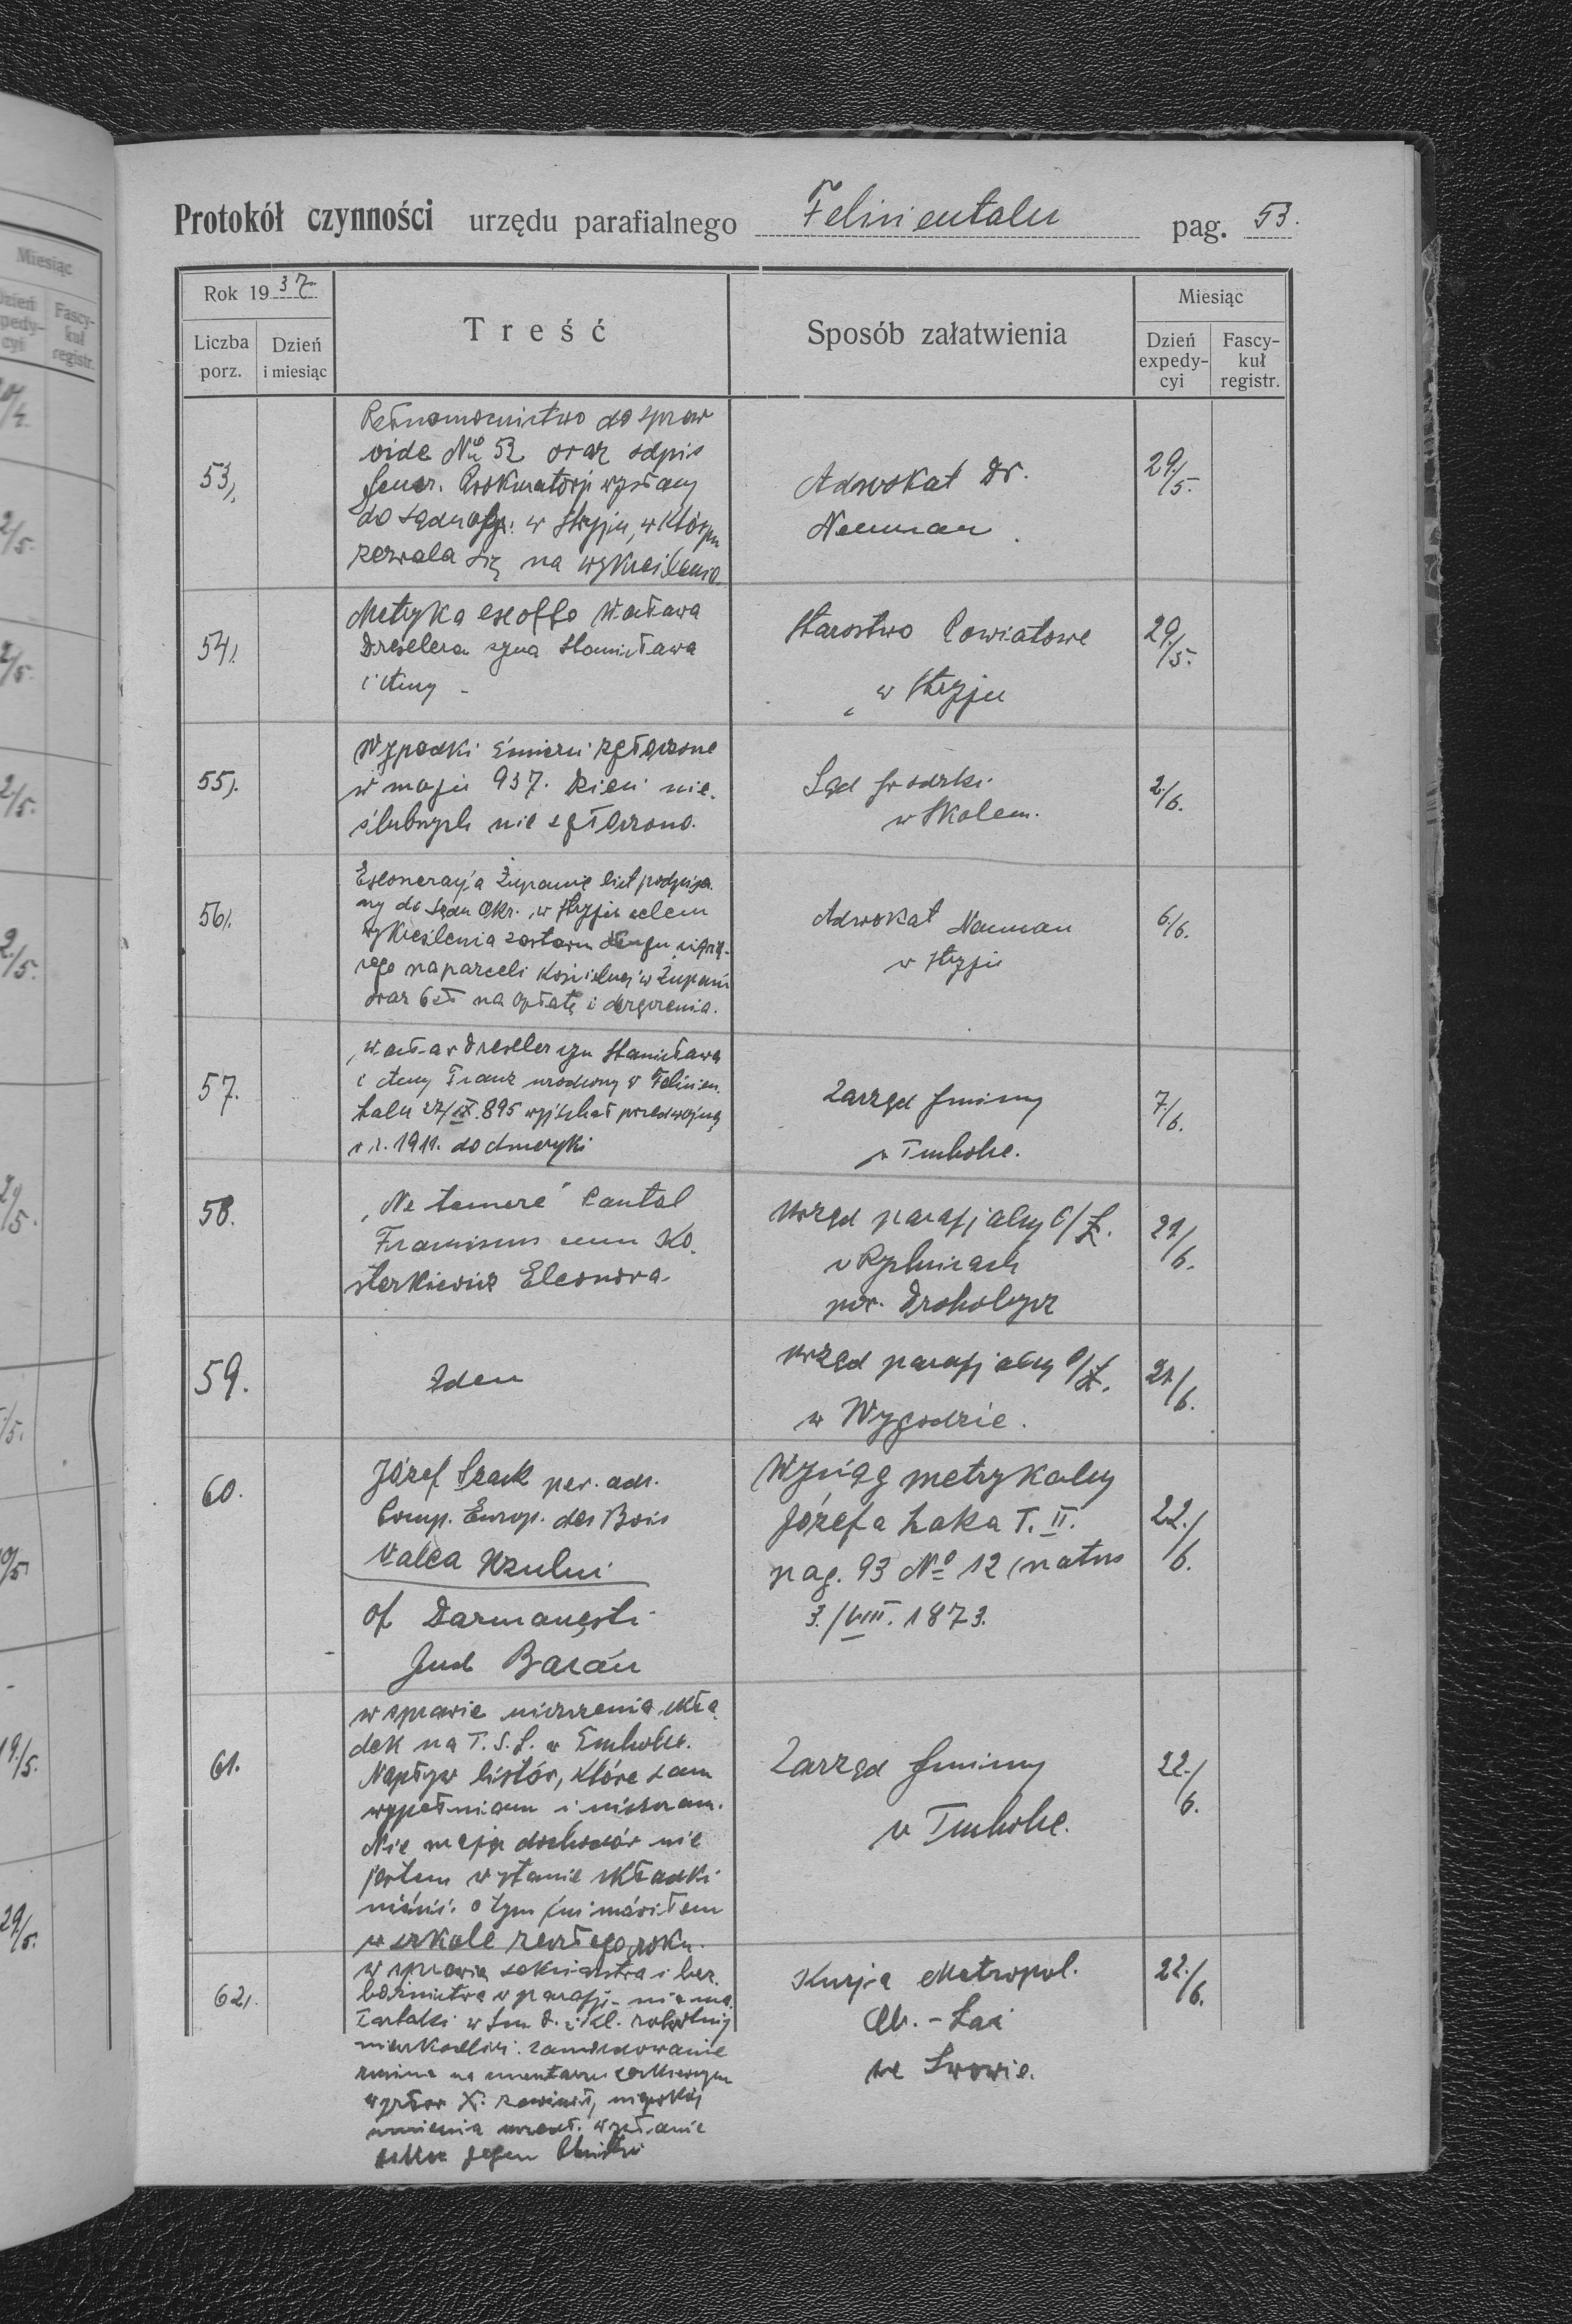 Protokół czynności urzędu parafialnego Felizientalu pag. 53.
Rok 1937
Liczba porz.
Dzień i miesiąc
Treść
Sposób załatwienia
Miesiąc
Dzień expedy-cyi
Fascy-kuł registr.
53,
Pełnomocnictwo do spraw
vide No 52 oraz odpis
Gener. Prokuratorji wysłany
do Sądu okr. w Stryju, w którym
zezwala się na wykreślenie.
Adwokat Dr.
Neuman.
29/5.
54).
Metryka ex offo Wacława
Dreslera syna Stanisława
i Anny -
Starostwo Powiatowe
w Stryju
29/5.
55).
Wypadki śmierci zgłoszone
w maju 937. Dzieci nie-
ślubnych nie zgłoszono.
Sąd Grodzki
w Skolem.
2/6.
56).
Exoneracja Żupanie list podpisa-
ny do Sądu Okr. w Stryju celem
wykreślenia zastawu długu ciążą-
cego na parceli kościelnej w Żupani
oraz 6 zł na opłatę i doręczenia.
Adwokat Neuman
w Stryju
6/6.
57.
Wacław Dresler syn Stanisława
i Anny Franz urodzony w Felizien-
talu 27/IX.895 wyjechał przed wojną
w r. 1911. do Ameryki
Zarząd Gminy
w Tucholce.
7/6.
58.
"Ne temere" Pantol
Franciscus cum Ko-
sterkiewicz Eleonora
Urząd parafjalny o/Ł.
w Rychcicach
pow. Drohobycz
21/6.
59.
Idem
Urząd parafjalny o/Ł.
w Wygodzie.
21/6.
60.
Józef Szack per. adr.
Comp. Europ. des Bois
Valea Uzului
of Darmanești
Jud. Bacău
Wyciąg metrykalny
Józefa Żaka T. II.
pag. 93 No 12 (natus
3./VIII. 1873.
22./6.
61.
w sprawie uiszczenia skła-
dek na T.S.L. w Tucholce.
Napływ listów, które sam
wypełniam i uiszczam.
Nie mając dochodów nie
jestem w stanie składki
uiścić. o tym już mówiłem
w szkole zeszłego roku.
Zarząd Gminy
w Tucholce.
22./6.
62).
w sprawie sekciarstwa i bez-
bożnictwa w parafji - nie ma.
Tartaki
zamordowanie
na cmentarzu cerkiewnym
wysłanie
Kurja Metropol.
Ob. - Łać
we Lwowie.
22./6.
Miesiąc
Dzień expedy-cyi
Fascy-kuł registr.
2/5.
2/5.
2/5.
2/5.
29/5.
19/5.
29/5.